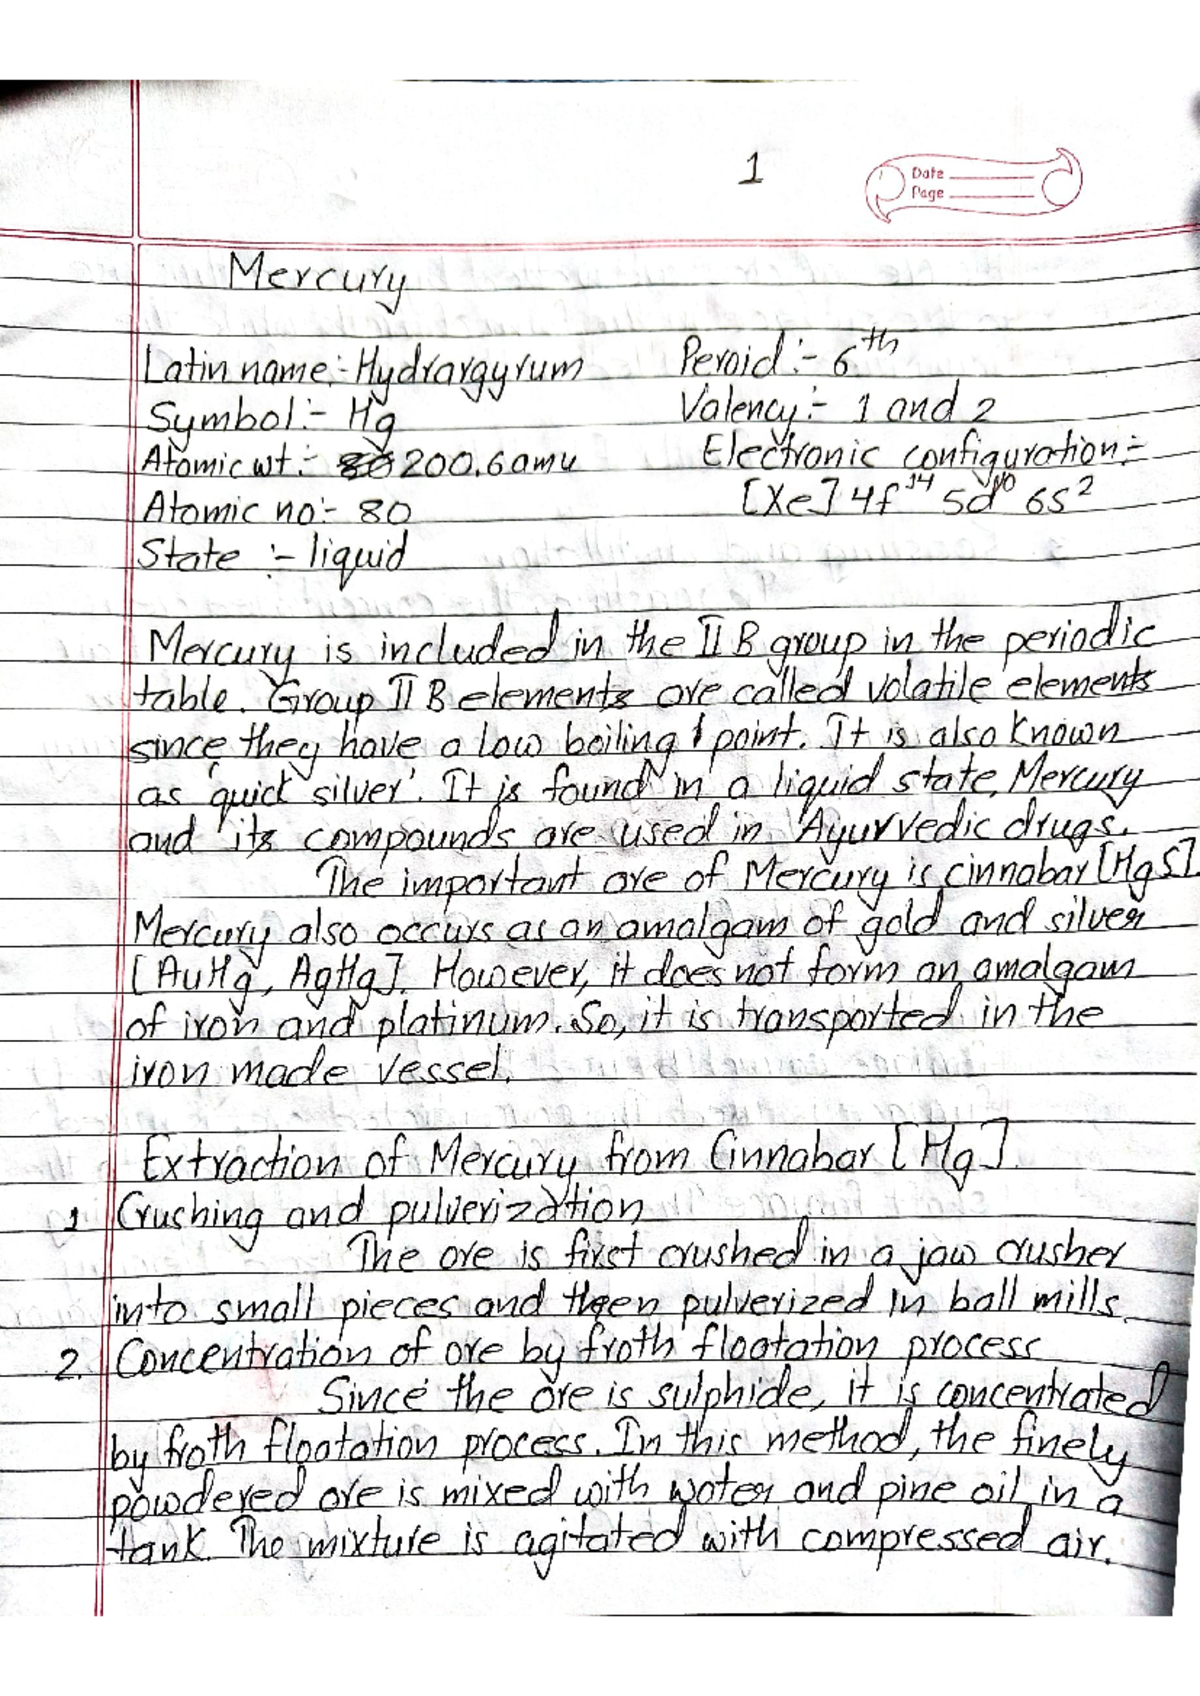 1
Date
Page
Mercury
Latin name:- Hydrargyrum
Peroid :- 6th
Symbol :- Hg
Valency :- 1 and 2
Atomic wt :- 200.6amu
Electronic configuration:-
Atomic no:- 80
[Xe] 4f14 5d10 6s2
State :- liquid
Mercury is included in the II B group in the periodic
table. Group II B elements are called volatile elements
since, they have a low boiling point. It is also known
as 'quick silver'. It is found in a liquid state, Mercury
and its compounds are used in Ayurvedic drugs.
The important ore of Mercury is cinnabar [HgS].
Mercury also occurs as an amalgam of gold and silver
[AuHg, AgHg]. However, it does not form an amalgam
of iron and platinum. So, it is transported in the
iron made vessel.
Extraction of Mercury from Cinnabar [Hg].
1 Crushing and pulverization
The ore is first crushed in a jaw crusher
into small pieces and then pulverized in ball mills.
2. Concentration of ore by froth floatation process
Since the ore is sulphide, it is concentrated
by froth floatation process. In this method, the finely
powdered ore is mixed with water and pine oil in a
tank. The mixture is agitated with compressed air.